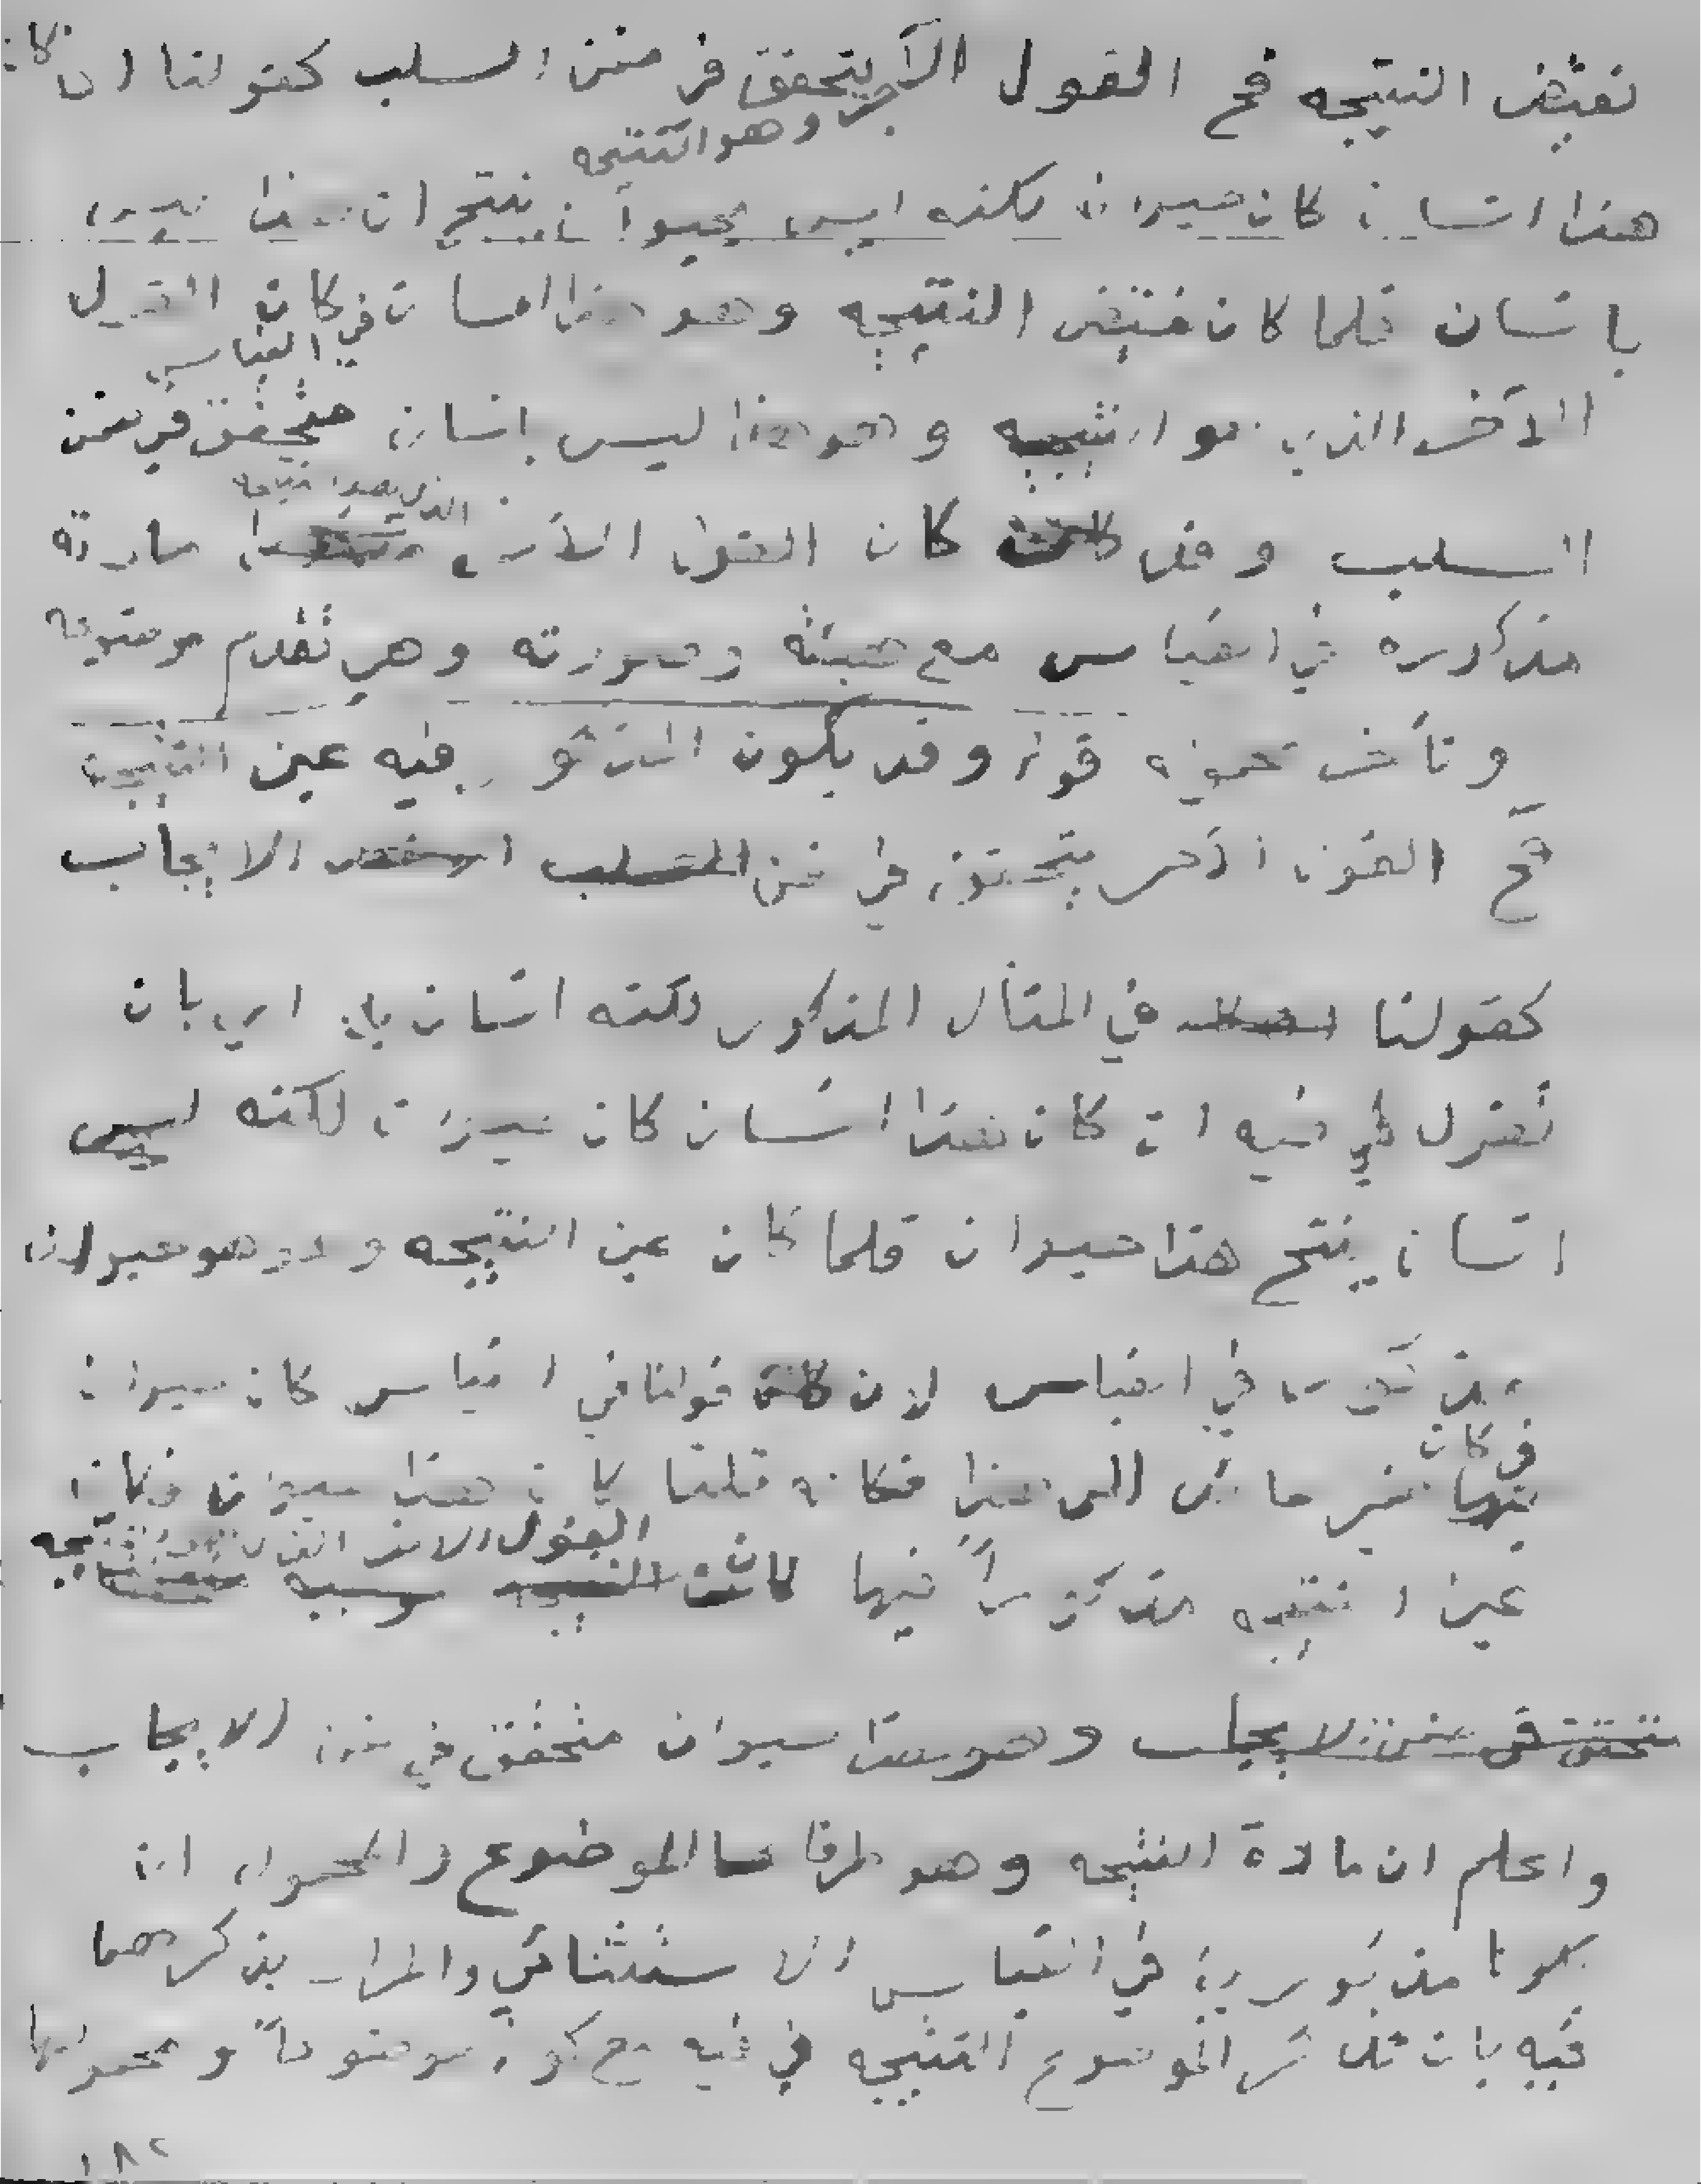 نقيض النتيجه فح القول الآخر يتحقق في ضمن السلب كقولنا ان كان
وهو النتيجه
هذا انسان كان حيوان لكنه ليس بحيوان ينتج ان هذا ليس
بانسان فلما كان نقيض النتيجه وهو هذا انسان في كان القول
في القياس
الآخر الذي هو النتيجه وهو هذا ليس بانسان متحقق في ضمن
السلب وقد كان القول الآخر الذي هو النتيجه مادته
مذكوره في القياس مع هيئته وصورته وهي تقدم موضوعه
وتأخر محموله قوله وقد يكون المذكور فيه عين النتيجه
فح القول الآخر يتحقق في ضمن السلب الايجاب
كقولنا في المثال المذكور لكنه انسان بان اي بان
نقول في فيه ان كان هذا انسان كان حيوان لكنه ليس
انسان ينتج هذا حيوان فلما كان عين النتيجه وهو هو حيوان
مذكورا في القياس لان قولنا في القياس كان حيوان
في كان
ضمير عائد الى هذا فكانه قلنا كان هذا حيوان فكان
القول الآخر الذي هو النتيجه
عين النتيجه مذكوراً فيها كان النتيجه
متحقق في ضمن الايجاب وهو هذا حيوان متحقق في ضمن الايجاب
واعلم ان مادة النتيجه وهو طرفاها الموضوع والمحمول ان
يكونا مذكورين في القياس الاستثنائي والمراد بذكرهما
فيه بان تذكر الموضوع النتيجه في فيه مع كونه موضوعاً ومحمولها
١٨٢